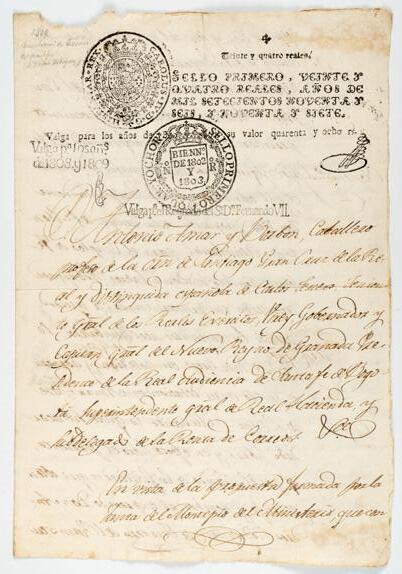 Treinte y quatro reales.
SELLO PRIMERO, VEINTE Y
QUATRO REALES, AÑOS DE
MIL SETECIENTOS NOVENTA Y
SEIS, Y NOVENTA Y SIETE.
CAROLUS
Valga para los años de su valor quarenta y ocho rs.
Valga pª. los años
de 1808, y 1809
SELLO PRIMERO
BIENNº.
DE 1802
Y
1803
Valga pº. el Reynado del S. Dn. Fernando VII.
Antonio Amar y Borbon, Caballero
profeso de la Orn. de Santiago Gran Cruz de la Re
al y distinguida española de Carlos tercero, Tenien
te Gral de los Reales Exercitos, Virrey Gobernador y
Capitan Gral del Nuevo Reyno de Granada, Pre
sidente de la Real Audiencia de Santafe de Bogo
tá, Superintendente Gral de Real Hacienda, y
Subdelegado de la Renta de Correos &a
En vista de la propuesta formada por la
Junta del Montepio del Ministerio que con